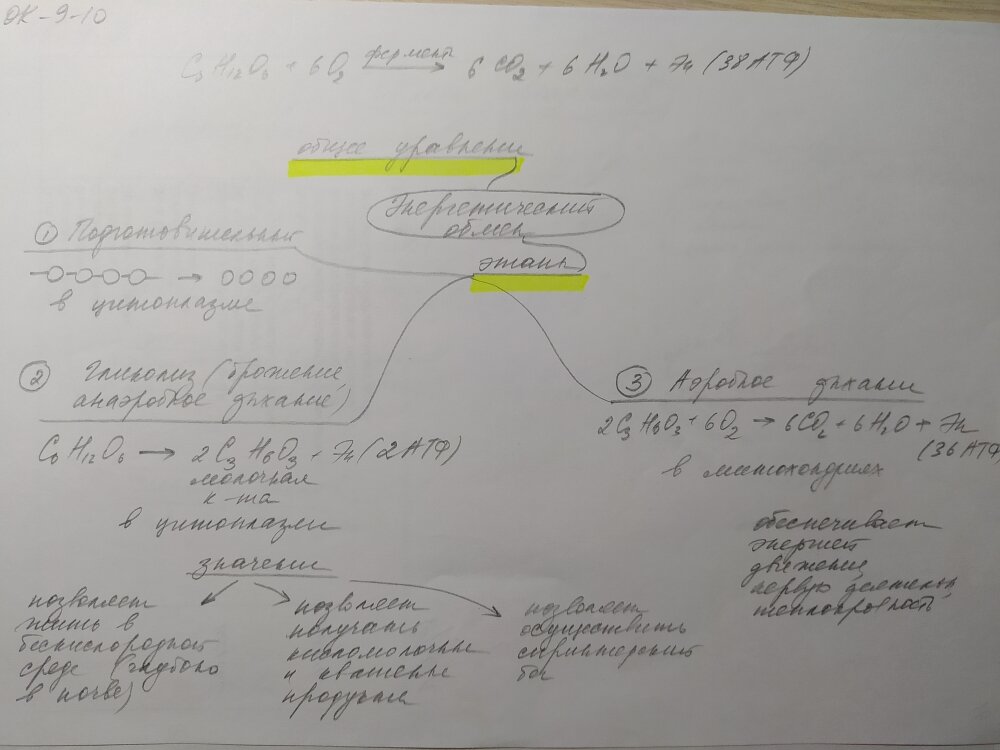 ОК-9-10
C₃H₁₂O₆ + 6O₂ фермент → 6CO₂ + 6H₂O + Эн (38АТФ)
общее уравнение
Энергетический
обмен
этапы
① Подготовительный
-O-O-O-O- → OOOO
в цитоплазме
② Гликолиз (брожение,
анаэробное дыхание)
C₆H₁₂O₆ → 2C₃H₆O₃ + Эн (2АТФ)
молочная
к-та
в цитоплазме
значение
позволяет
жить в
бескислородной
среде (глубоко
в почве)
позволяет
получать
кисломолочные
и квашеные
продукты
позволяет
осуществить
спринтерский
бег
③ Аэробное дыхание
2C₃H₆O₃ + 6O₂ → 6CO₂ + 6H₂O + Эн
(36 АТФ)
в митохондриях
обеспечивает
энергией
движение,
нервную деятельн,
теплокровность